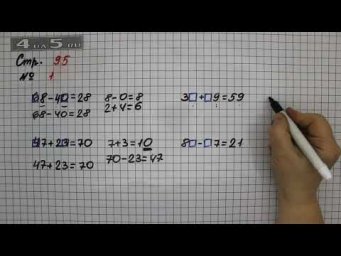 4 на 5.RU
Стр. 95
№ 1
68-40=28 8-0=8 3□+□9=59
68-40=28 2+4=6
47+23=70 7+3=10 8□-□7=21
47+23=70 70-23=47